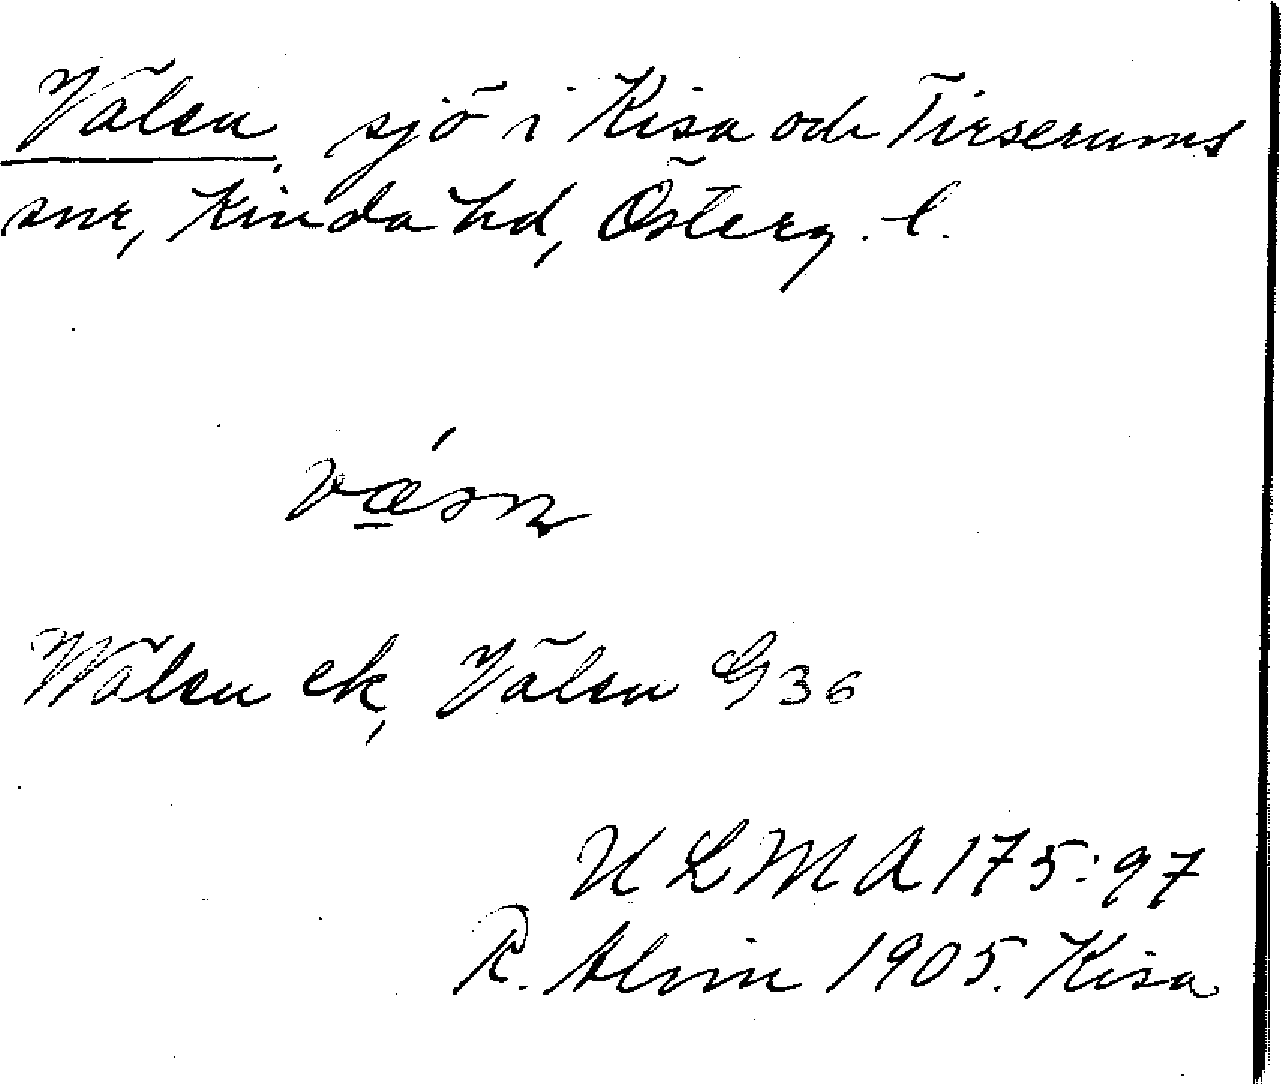 Välen, sjö i Kisa och Tirserums
snr, Kinda hd, Österg. l.
Wälen ek, Välen G 36
ULMA 175:97
R. Alvin 1905. Kisa